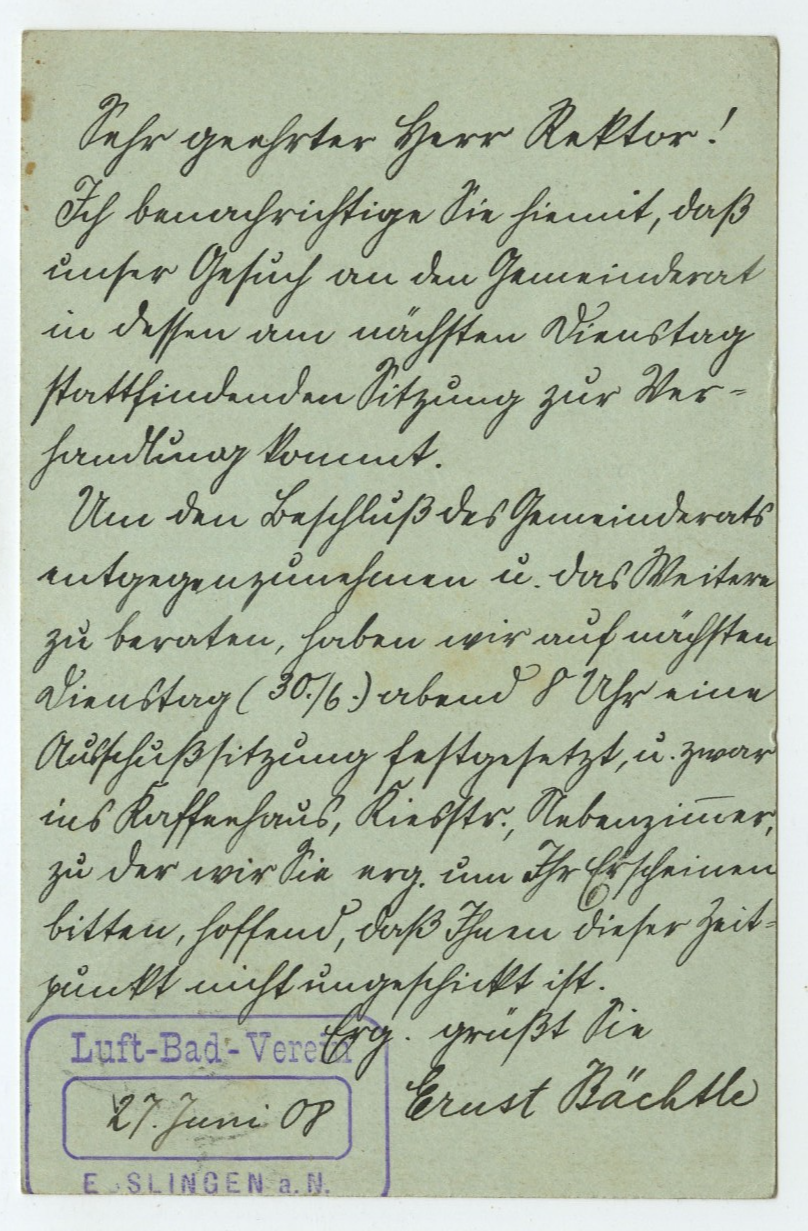 Sehr geehrter Herr Rektor!
Ich benachrichtige Sie hiemit, daß
unser Gesuch an den Gemeinderat
in dessen am nächsten Dienstag
stattfindenden Sitzung zur Ver=
handlung kommt.
Um den Beschluß des Gemeinderats
entgegenzunehmen u. das Weitere
zu beraten, haben wir auf nächsten
Dienstag (30./6.) abend 8 Uhr eine
Ausschußsitzung festgesetzt, u. zwar
ins Kaffeehaus, Kiesstr., Nebenzim̅er,
zu der wir Sie erg. um Ihr Erscheinen
bitten, hoffend, daß Ihnen dieser Zeit=
punkt nicht ungeschickt ist.
Erg. grüßt Sie
Ernst Bächtle
Luft-Bad-Verein
27. Juni 08
ESSLINGEN a. N.